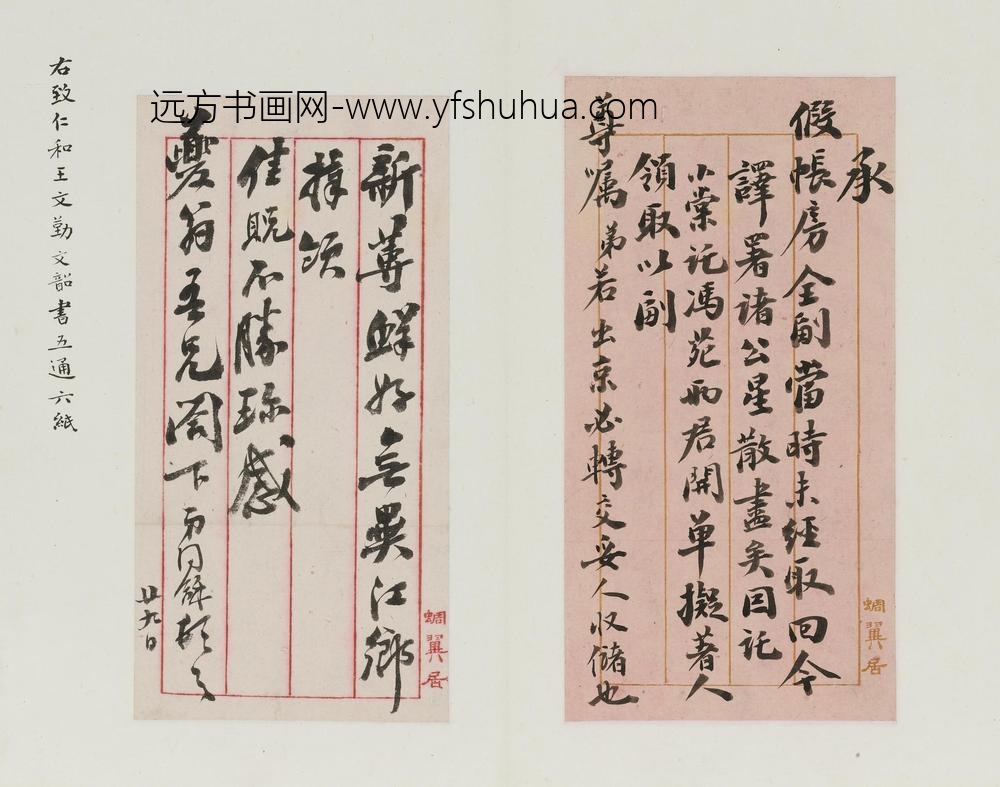 远方书画网-www.yfshuhua.com
承
假帳房全副當時未經取回今
譯署诸公星散盡矣因託
小棠託馮苑雨居開单擬著人
領取以副
尊嘱弟若出京必轉交妥人收储也
蜩翼居
新蓴鲜好無異江鄉
拜領
佳貺不勝珍感
夔翁吾兄阁下
廿九日
蜩翼居
右致仁和王文勤文韶書五通六紙